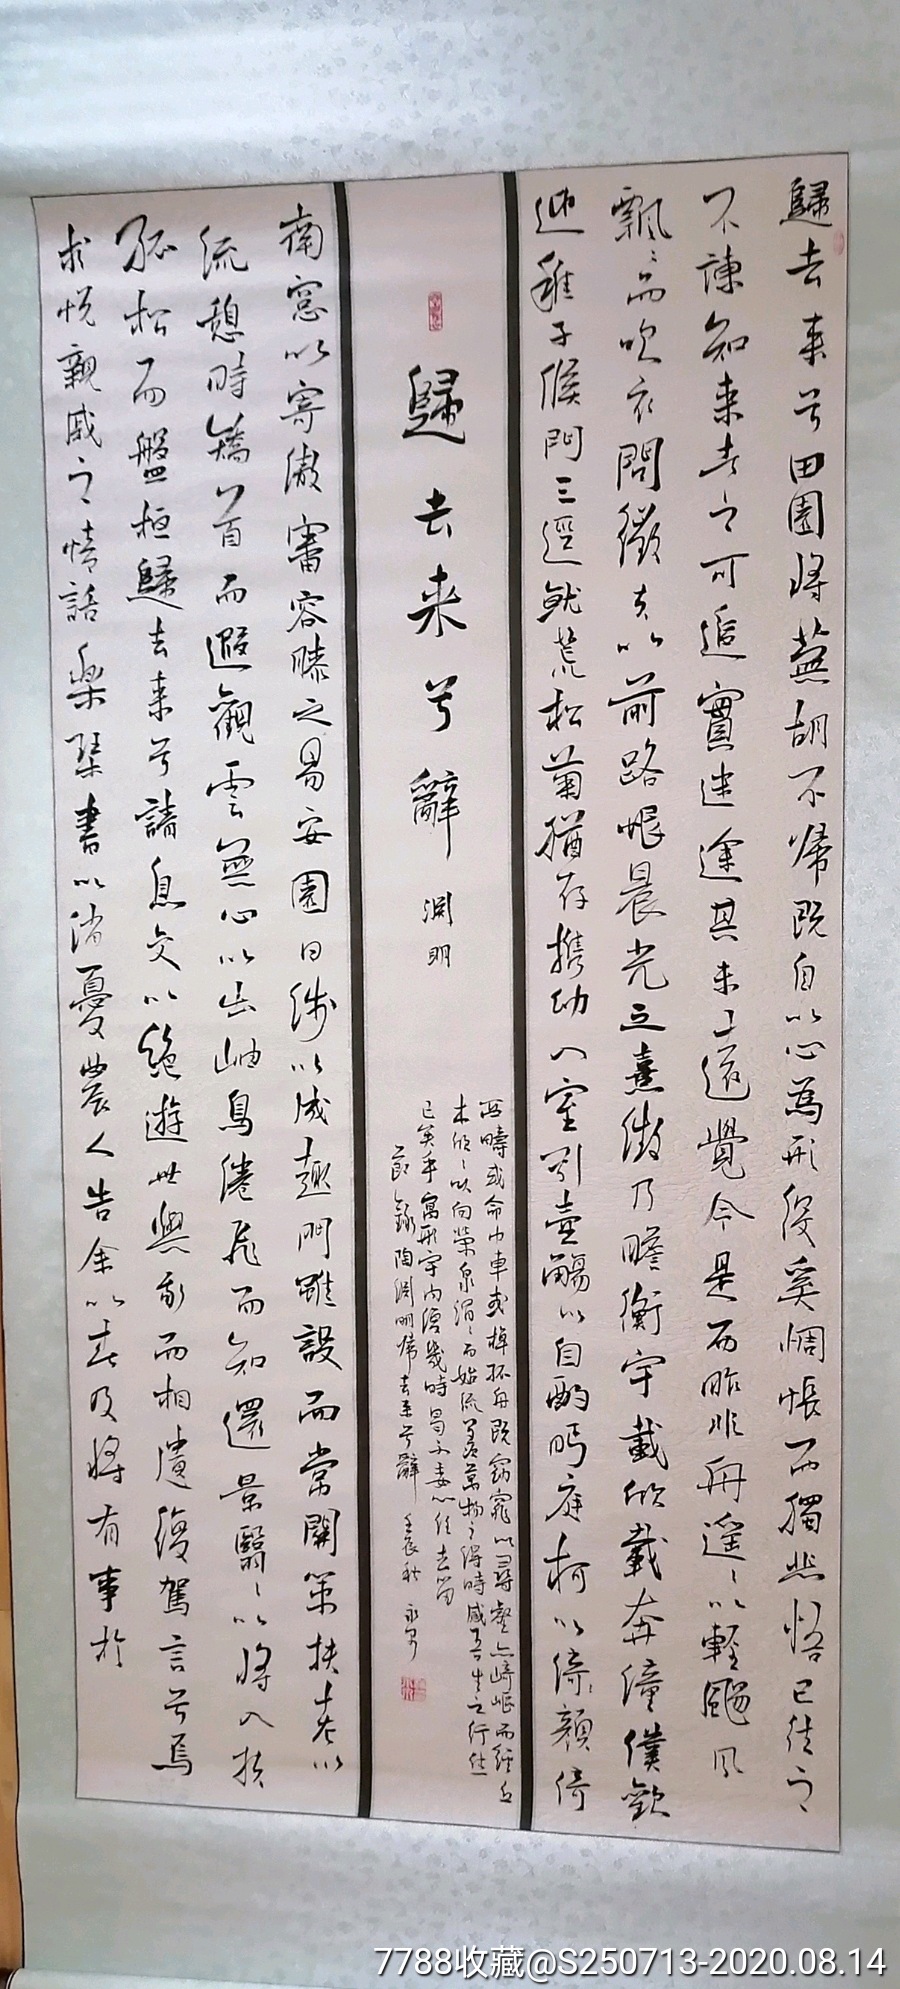 歸去来兮田園將蕪胡不帰既自以心為形役奚惆悵而獨悲悟已往之
不諫知来者之可追實迷途其未遠覺今是而昨非舟遥〻以輕颺風
飄〻而吹衣問征夫以前路恨晨光之熹微乃瞻衡宇載欣載奔僮僕歓
迎稚子候門三逕就荒松菊猶存携幼入室引壺觴以自酌眄庭柯以怡顔倚
歸去来兮辭 淵明
西疇或命巾車或棹孤舟既窈窕以尋壑亦崎嶇而經丘
木欣〻以向榮泉涓〻而始流羡萬物之得時感吾生之行休
已矣乎寓形宇内復幾時曷不委心任去留
節錄陶淵明帰去来兮辭 壬辰秋
南窓以寄傲審容膝之易安園日涉以成趣門雖設而常関策扶老以
流憩時矯首而遐觀雲無心以出岫鳥倦飛而知還景翳〻以將入撫
孤松而盤桓歸去来兮請息交以絶遊世與我而相遺復駕言兮焉
求悦親戚之情話樂琴書以消憂農人告余以春及將有事於
7788收藏@S250713-2020.08.14